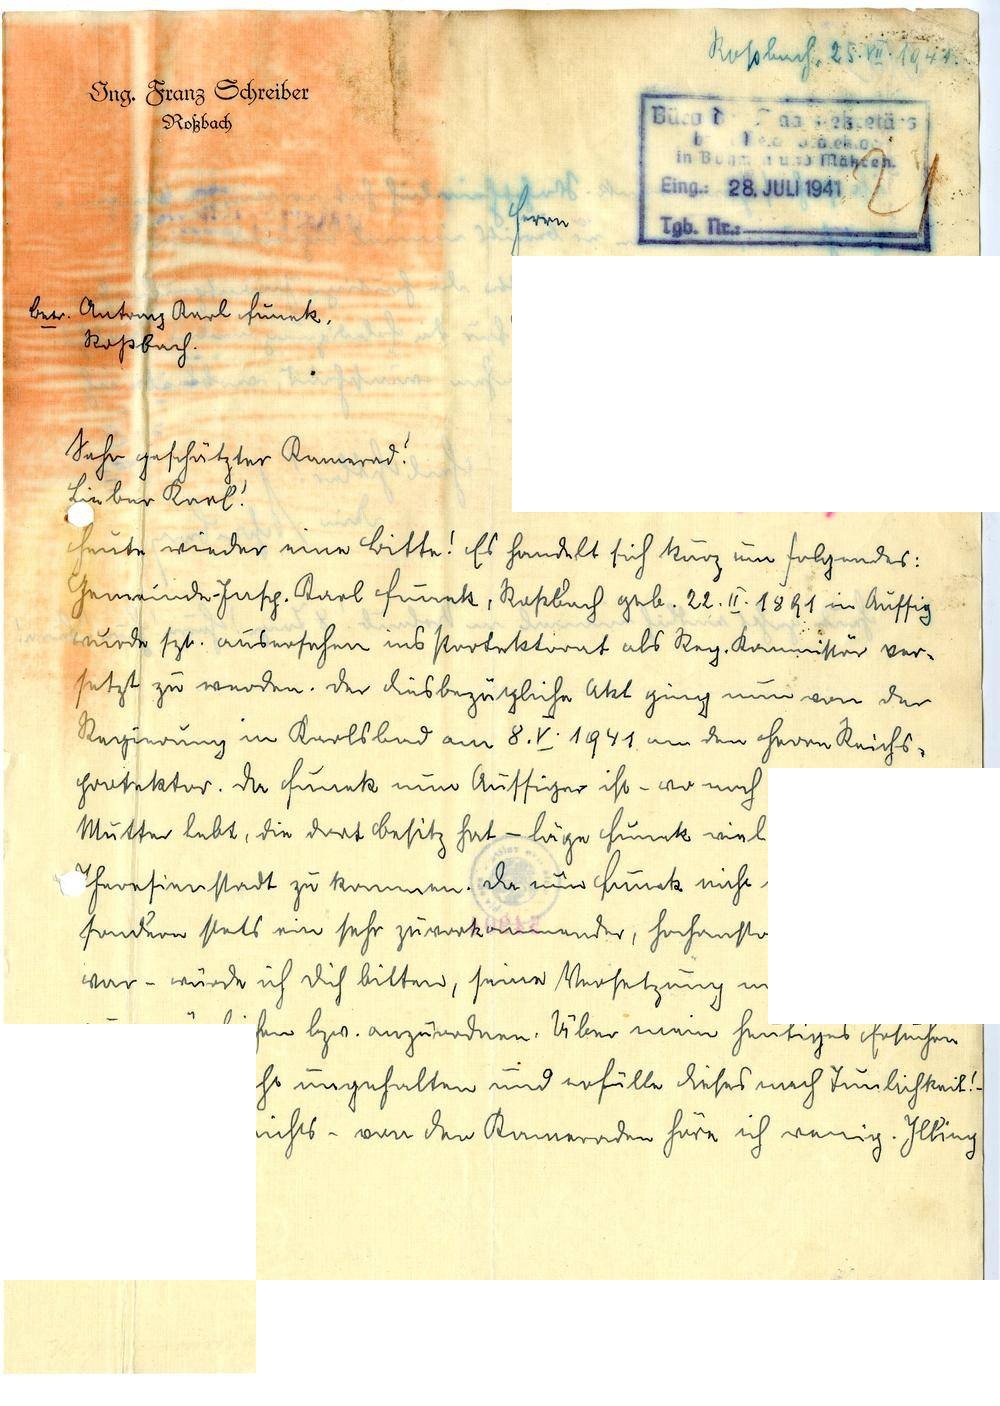 Roßbach, 25.VII.1941.
Ing. Franz Schreiber
Roßbach
Büro d Staatssekretärs
b Reichsprotektor
in Böhmen und Mähren.
Eing.: 28. JULI 1941
Tgb. Nr.:
Herrn
betr. Antrag Karl Funek,
Roßbach.
Sehr geschätzter Kamerad!
Lieber Karl!
Heute wieder eine Bitte! Es handelt sich kurz um folgendes:
Gemeinde-Insp. Karl Funek, Roßbach geb. 22.II.1891 in Aussig
wurde szt. ausersehen ins Protektorat als Reg. Kommissär ver-
setzt zu werden. Der diesbezügliche Akt ging nun von der
Regierung in Karlsbad am 8.V.1941 an den Herrn Reichs-
protektor. Da Funek nun Aussiger ist - wo noch
Mutter lebt, die dort Besitz hat - läge Funek viel
Theresienstadt zu kommen. Da nun Funek nicht
sondern stets ein sehr zuvorkommender, hochansta
war - würde ich Dich bitten, seine Versetzung
bzw. anzuordnen. Über mein heutiges Ersuchen
ungehalten und erfülle dieses nach Tunlichkeit!-
nichts - von den Kameraden höre ich wenig. Illing